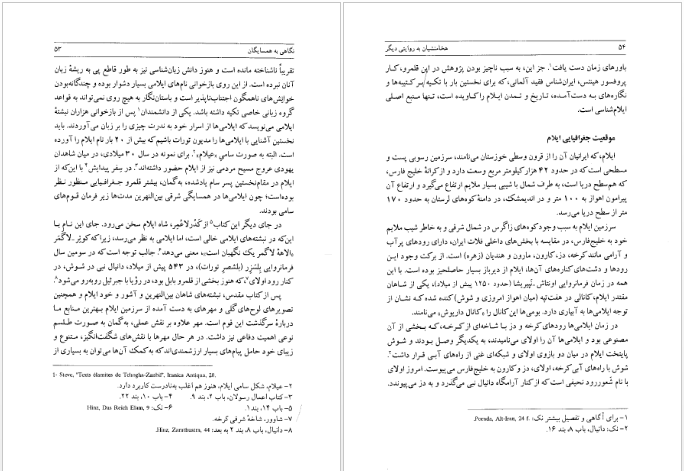 نگاهی به همسایگان ۵۳
تقریباً ناشناخته مانده است و هنوز دانش زبان‌شناسی نیز به طور قاطع پی به ریشهٔ زبان
آنان نبرده است. از این روی بازخوانی نام‌های ایلامی بسیار دشوار بوده و چندگانه‌بودن
خوانش‌های ناهمگون اجتناب‌ناپذیر است و باستان‌نگار به هیچ روی نمی‌تواند به قواعد
گروه زبانی خاصی تکیه داشته باشد. یکی از دانشمندان۱ پس از بازخوانی هزاران نبشتهٔ
ایلامی می‌نویسد که ایلامی‌ها از اسرار خود به ندرت چیزی را بر زبان می‌آورند. باید
نخستین آشنایی با ایلامی‌ها را مدیون تورات باشیم که بیش از ۲۰ بار نام ایلام را آورده
است. البته به صورت سامی «عیلام»۲. برای نمونه در سال ۳۰ میلادی، در میان شاهدان
یهودی عروج مسیح مردمی نیز از ایلام حضور داشته‌اند۳. در سفر پیدایش۴ با این‌که از
ایلام در مقام نخستین پسر سام یادشده، به‌گمان، بیشتر قلمرو جغرافیایی منظور نظر
بوده‌است؛ چون ایلامی‌ها در همسایگی شرقی بین‌النهرین مدت‌ها زیر فرمان قوم‌های
سامی بودند.
در جای دیگر این کتاب۵ از کُدُرلاعُمِر، شاه ایلام سخن می‌رود. جای این نام با
این‌که در نبشته‌های ایلامی خالی است، اما ایلامی به نظر می‌رسد، زیرا که کوتِر ـ لاگَمَر
بالاههٔ لاگمر یک نگهبان است»، معنی می‌دهد۶. جالب توجه است که در سومین سال
فرمانروایی بِلشَزَر (بلشصر تورات)، در ۵۴۳ پیش از میلاد، دانیال نبی در شوش، در
کنار رود اولای۷، که هنوز بخشی از قلمرو بابل بود، در رؤیا با جبرئیل روبه‌رو می‌شود۸.
پس از کتاب مقدس، نبشته‌های شاهان بین‌النهرین و آشور و خود ایلام و همچنین
تصویرهای لوح‌های گلی و مهرهای به دست آمده از سرزمین ایلام بهترین صنایع ما
دربارهٔ سرگذشت این قوم است. مهر علاوه بر نقش عملی، به‌گمان به صورت طلسم
نوعی اهمیت دفاعی نیز داشت. در هر حال مهرها با نقش‌های شگفت‌انگیز، متنوع و
زیبای خود حامل پیام‌های بسیار ارزشمندی‌اند که به کمک آن‌ها می‌توان به بسیاری از
1- Steve, "Texto élamites de Tchogha-Zanbil", Iranica Antiqua, 28.
۲- عیلام، شکل سامی ایلام، هنوز هم اغلب به‌نادرست کاربرد دارد.
۳- کتاب اعمال رسولان، باب ۲، بند ۹. ۴- باب ۱۰، بند ۲۲.
۵- باب ۱۴، بند ۱. ۶- نک: Hinz, Das Reich Elam, 9.
۷- شاوور، شاخهٔ شرقی کرخه.
۸- دانیال، باب ۸، بند ۲ به بعد؛ Hinz, Zarathustra, 44.
۵۴ هخامنشیان به روایتی دیگر
باورهای زمان دست یافت۱. جز این، به سبب ناچیز بودن پژوهش در این قلمرو، کار
پروفسور هینتس، ایران‌شناس فقید آلمانی، که برای نخستین بار با تکیه بر کتیبه‌ها و
نگاره‌های به دست‌آمده، تاریخ و تمدن ایلام را کاویده است، تنها منبع اصلی
ایلام‌شناسی است.
موقعیت جغرافیایی ایلام
ایلام، که ایرانیان آن را از قرون وسطی خوزستان می‌نامند، سرزمین رسوبی پست و
مسطحی است که در حدود ۴۲ هزار کیلومتر مربع وسعت دارد و از کرانهٔ خلیج فارس،
که هم‌سطح دریا است، به طرف شمال با شیبی بسیار ملایم ارتفاع می‌گیرد و ارتفاع آن
پیرامون اهواز به ۱۰۰ متر و در اندیمشک، در دامنهٔ کوه‌های لرستان به حدود ۱۷۰
متر از سطح دریا می‌رسد.
سرزمین ایلام به سبب وجود کوه‌های زاگرس در شمال شرقی و به خاطر شیب ملایم
خود به خلیج‌فارس، در مقایسه با بخش‌های داخلی فلات ایران، دارای رودهای پرآب
و آرامی مانند کرخه، دز، کارون، مارون و هندیان (زهره) است. از برکت وجود این
رودها و دشت‌های کناره‌های آن‌ها، ایلام از دیرباز بسیار حاصلخیز بوده است. با این
همه در زمان فرمانروایی اونتاش ـ نَپیریشا (حدود ۱۲۵۰ پیش از میلاد)، یکی از شاهان
مقتدر ایلام، کانالی در هفت‌تپه (میان اهواز امروزی و شوش) کنده شده که نشان از
توجه ایلامی‌ها به آبیاری دارد. بومی‌ها این کانال را «کانال داریوش» می‌نامند.
در زمان ایلامی‌ها رودهای کرخه و دز با شاخه‌ای از کرخه، که بخشی از آن
مصنوعی بود و ایلامی‌ها آن را اولای می‌نامیدند، به یکدیگر وصل بودند و شوش
پایتخت ایلام در میان دو بازوی اولای و شبکه‌ای غنی از راه‌های آبی قرار داشت۲.
شوش با راه‌های آبی کرخه، اولای، دز و کارون به خلیج‌فارس می‌پیوست. امروز اولای
با نام شوور رود نحیفی است که از کنار آرامگاه دانیال نبی می‌گذرد و به دز می‌پیوندد.
۱- برای آگاهی و تفصیل بیشتر نک: Porada, Alt-Iran, 24 f.
۲- نک: دانیال، باب ۸، بند ۱۶.